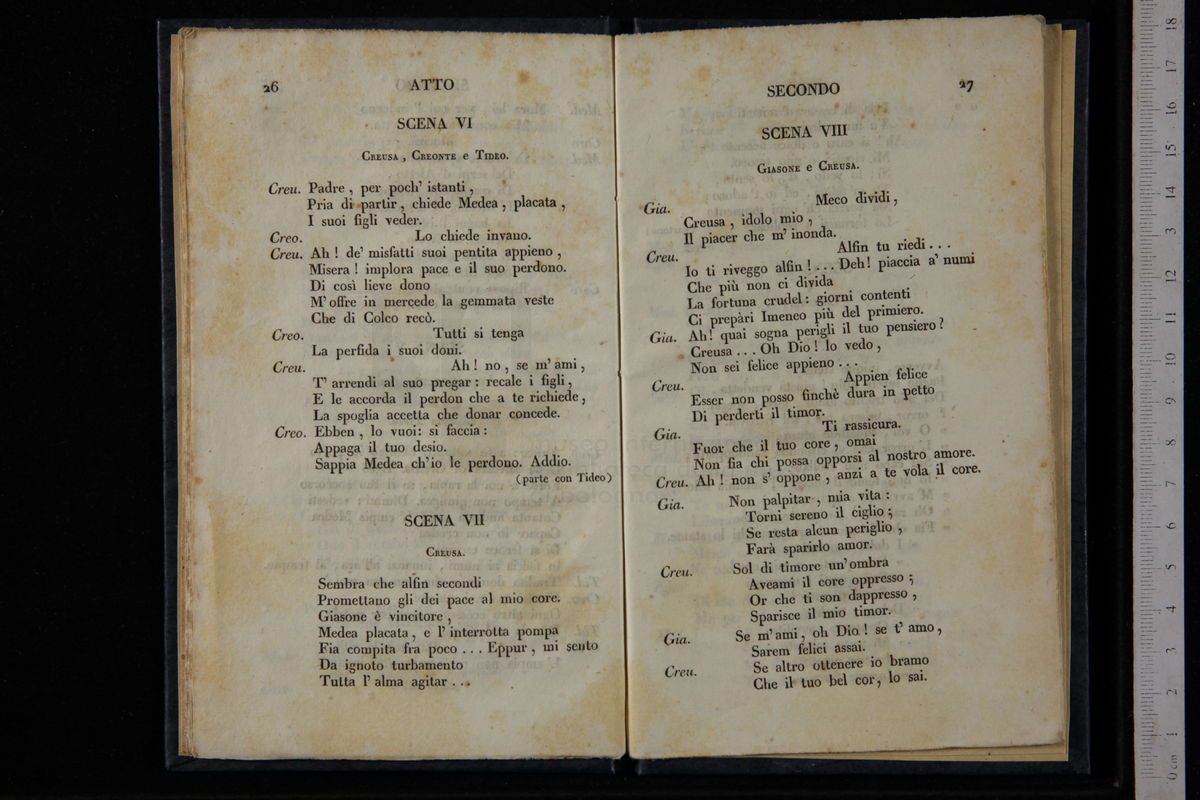 26 ATTO
SCENA VI
Creusa, Creonte e Tideo.
Creu. Padre, per poch' istanti,
Pria di partir, chiede Medea, placata,
I suoi figli veder.
Creo. Lo chiede invano.
Creu. Ah! de' misfatti suoi pentita appieno,
Misera! implora pace e il suo perdono.
Di così lieve dono
M' offre in mercede la gemmata veste
Che di Colco recò.
Creo. Tutti si tenga
La perfida i suoi doni.
Creu. Ah! no, se m' ami,
T' arrendi al suo pregar: recale i figli,
E le accorda il perdon che a te richiede,
La spoglia accetta che donar concede.
Creo. Ebben, lo vuoi: si faccia:
Appaga il tuo desio.
Sappia Medea ch'io le perdono. Addio.
(parte con Tideo)
SCENA VII
Creusa.
Sembra che alfin secondi
Promettano gli dei pace al mio core.
Giasone è vincitore,
Medea placata, e l' interrotta pompa
Fia compita fra poco ... Eppur, mi sento
Da ignoto turbamento
Tutta l' alma agitar ...
SECONDO 27
SCENA VIII
Giasone e Creusa.
Gia. Meco dividi,
Creusa, idolo mio,
Il piacer che m' inonda.
Creu. Alfin tu riedi...
Io ti riveggo alfin!... Deh! piaccia a' numi
Che più non ci divida
La fortuna crudel: giorni contenti
Ci prepàri Imeneo più del primiero.
Gia. Ah! quai sogna perigli il tuo pensiero?
Creusa... Oh Dio! lo vedo,
Non sei felice appieno...
Creu. Appien felice
Esser non posso finchè dura in petto
Di perderti il timor.
Gia. Ti rassicura.
Fuor che il tuo core, omai
Non fia chi possa opporsi al nostro amore.
Creu. Ah! non s' oppone, anzi a te vola il core.
Gia. Non palpitar, mia vita:
Torni sereno il ciglio;
Se resta alcun periglio,
Farà sparirlo amor.
Creu. Sol di timore un' ombra
Aveami il core oppresso;
Or che ti son dappresso,
Sparisce il mio timor.
Gia. Se m' ami, oh Dio! se t' amo,
Sarem felici assai.
Creu. Se altro ottenere io bramo
Che il tuo bel cor, lo sai.
0 cm 1 2 3 4 5 6 7 8 9 10 11 12 13 14 15 16 17 18